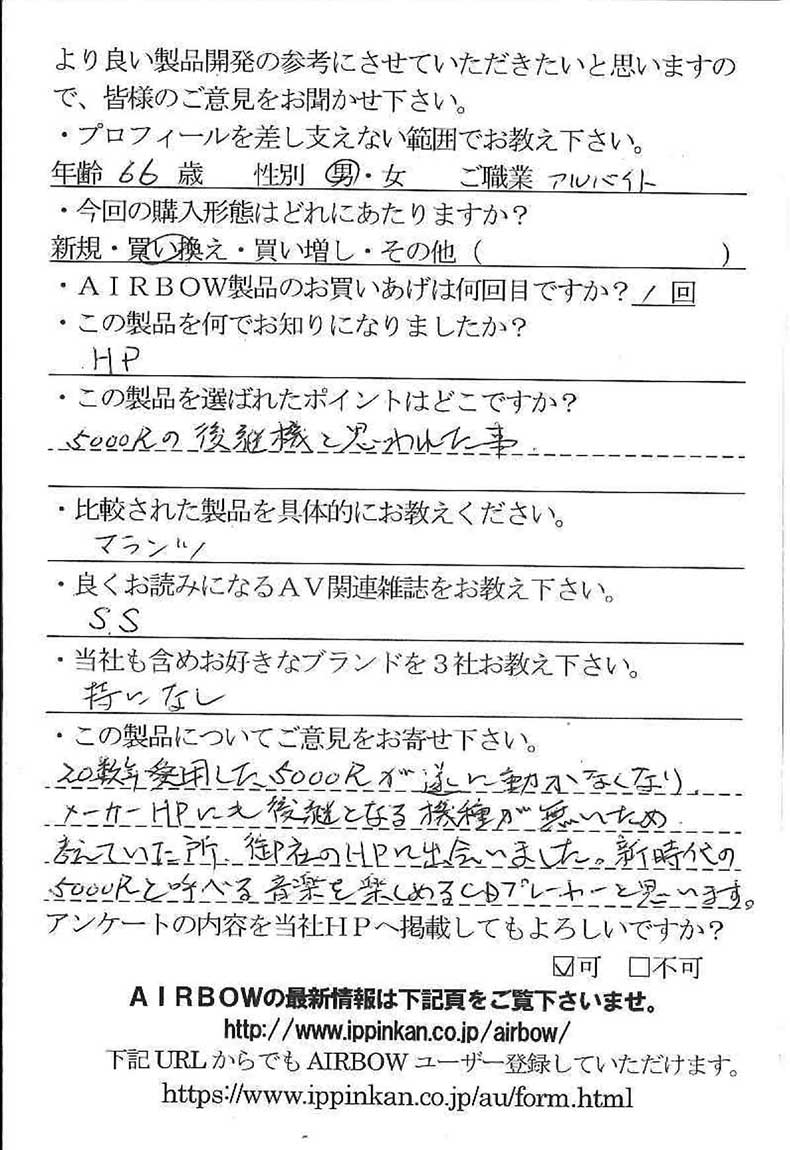 より良い製品開発の参考にさせていただきたいと思いますの
で、皆様のご意見をお聞かせ下さい。
・プロフィールを差し支えない範囲でお教え下さい。
年齢 66 歳 性別 男・女 ご職業 アルバイト
・今回の購入形態はどれにあたりますか？
新規・買い換え・買い増し・その他（ ）
・ＡＩＲＢＯＷ製品のお買いあげは何回目ですか？ 1 回
・この製品を何でお知りになりましたか？
HP
・この製品を選ばれたポイントはどこですか？
5000Rの後継機と思われた事
・比較された製品を具体的にお教えください。
マランツ
・良くお読みになるＡＶ関連雑誌をお教え下さい。
S.S
・当社も含めお好きなブランドを３社お教え下さい。
特になし
・この製品についてご意見をお寄せ下さい。
20数年愛用した5000Rが遂に動かなくなり、
メーカーHPにも後継となる機種が無いため
考えていた所、御社のHPに出会いました。新時代の
5000Rと呼べる音楽を楽しめるCDプレーヤーと思います。
アンケートの内容を当社ＨＰへ掲載してもよろしいですか？
☑可 □不可
ＡＩＲＢＯＷの最新情報は下記頁をご覧下さいませ。
http://www.ippinkan.co.jp/airbow/
下記 URL からでも AIRBOW ユーザー登録していただけます。
https://www.ippinkan.co.jp/au/form.html